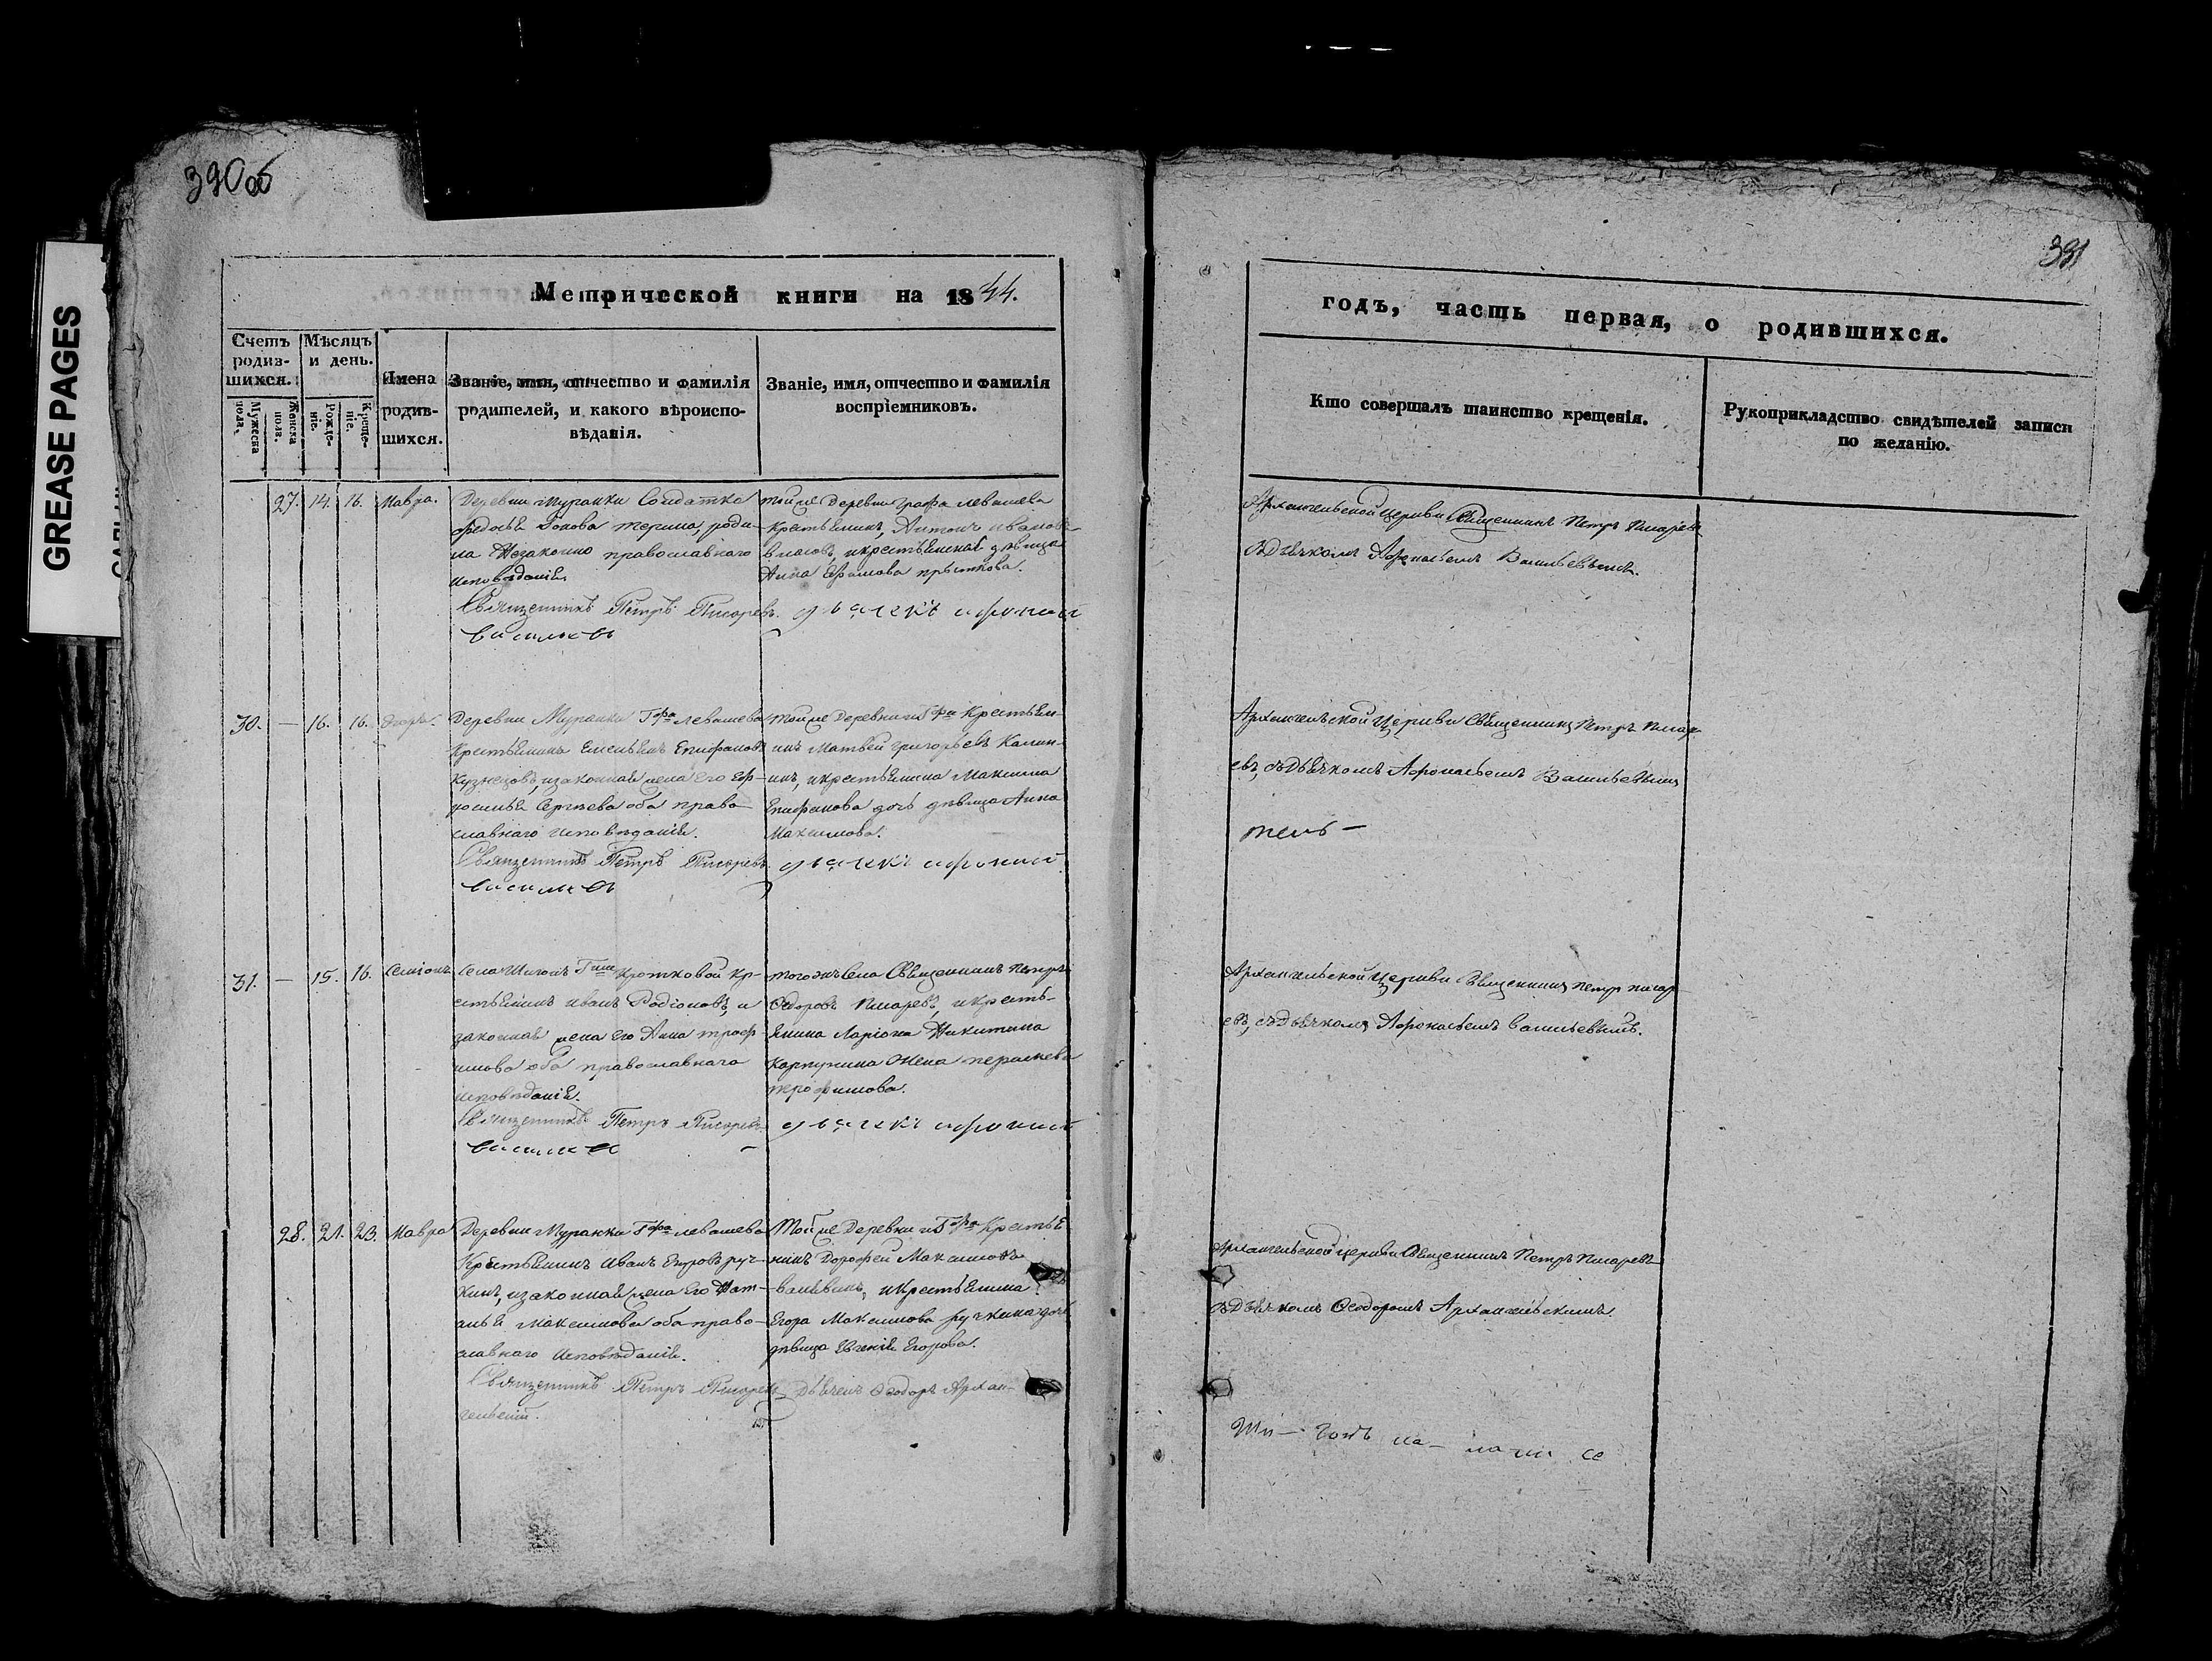 390об
GREASE PAGES
Метрической книги на 1844.
Счетъ родив-шихся.
Мужеска пола.
Женска пола.
Мѣсяцъ и день.
Рожде-ніе.
Креще-ніе.
Имена родив-шихся.
Званіе, имя, отчество и фамилія
родителей, и какого вѣроиспо-
вѣданія.
Званіе, имя, отчество и фамилія
воспріемниковъ.
27. 14. 16. Мавра.
Деревни Муранки Солдатка
родила незаконно православнаго
исповѣданія.
Священникъ Петръ Писаревъ.
тойже Деревни Графа Левашева
Крестьянинъ, Антонъ Иановъ
Власовъ, и крестьянская дѣвица
Анна Ефимова
дьячекъ афонасй
васильевъ
30. — 16. 16. Егоръ.
Деревни Муранки Гра Левашева
Крестьянинъ Емельянъ Епифановъ
Кузнецовъ, и законная жена его Еф-
росинья Сергѣева оба право-
славнаго исповѣданія.
Священникъ Петръ Писаревъ
тойже Деревни и Гра Крестьян-
инъ Матвей Григорьевъ Калин-
инъ, и крестьянина Максима
Епифанова дочь дѣвица Анна
Максимова.
дьячекъ афонасй
васильевъ
31. — 15. 16. Семіонъ
Села Шигонъ Гжи Кротковой Кр-
естьянинъ Иванъ Родіоновъ, и
законная жена его Анна Троф-
имова оба православнаго
исповѣданія.
Священникъ Петръ Писаревъ
тогожъ Села Священникъ Петръ
Ѳедоровъ Писаревъ, и кресть-
янина Ларіона Никитина
Карпунина Жена
трофимова.
дьячекъ афонасй
васильевъ
28. 21. 23. Мавра
Деревни Муранки Гра Левашева
Крестьянинъ Иванъ Егоровъ Руч-
кинъ, и законная жена его Нат-
алья Максимова оба право-
славнаго исповѣданія.
Священникъ Петръ Писаревъ
Тойже Деревни и Гра Крестья
нинъ Дорофей Максимовъ
и крестьянина
Егора Максимова Ручкина дочь
дѣвица Евгенія Егорова.
Дьячекъ Ѳеодоръ Архан-
гельскій.
391
годъ, часть первая, о родившихся.
Кто совершалъ таинство крещенія.
Рукоприкладство свидѣтелей записи
по желанію.
Архангельской Церкви Священникъ Петръ Писаревъ
съ Дьячкомъ Афонасьемъ Васильевымъ.
Архангельской Церкви Священникъ Петръ Писар-
евъ, съ Дьячкомъ Афонасьемъ Васильевымъ
тель —
Архангельской Церкви Священникъ Петръ Писар-
евъ, съ Дьячкомъ Афонасьемъ Васильевымъ.
Архангельской Церкви Священникъ Петръ Писаревъ
съ Дьячкомъ Ѳеодоромъ Архангельскимъ.